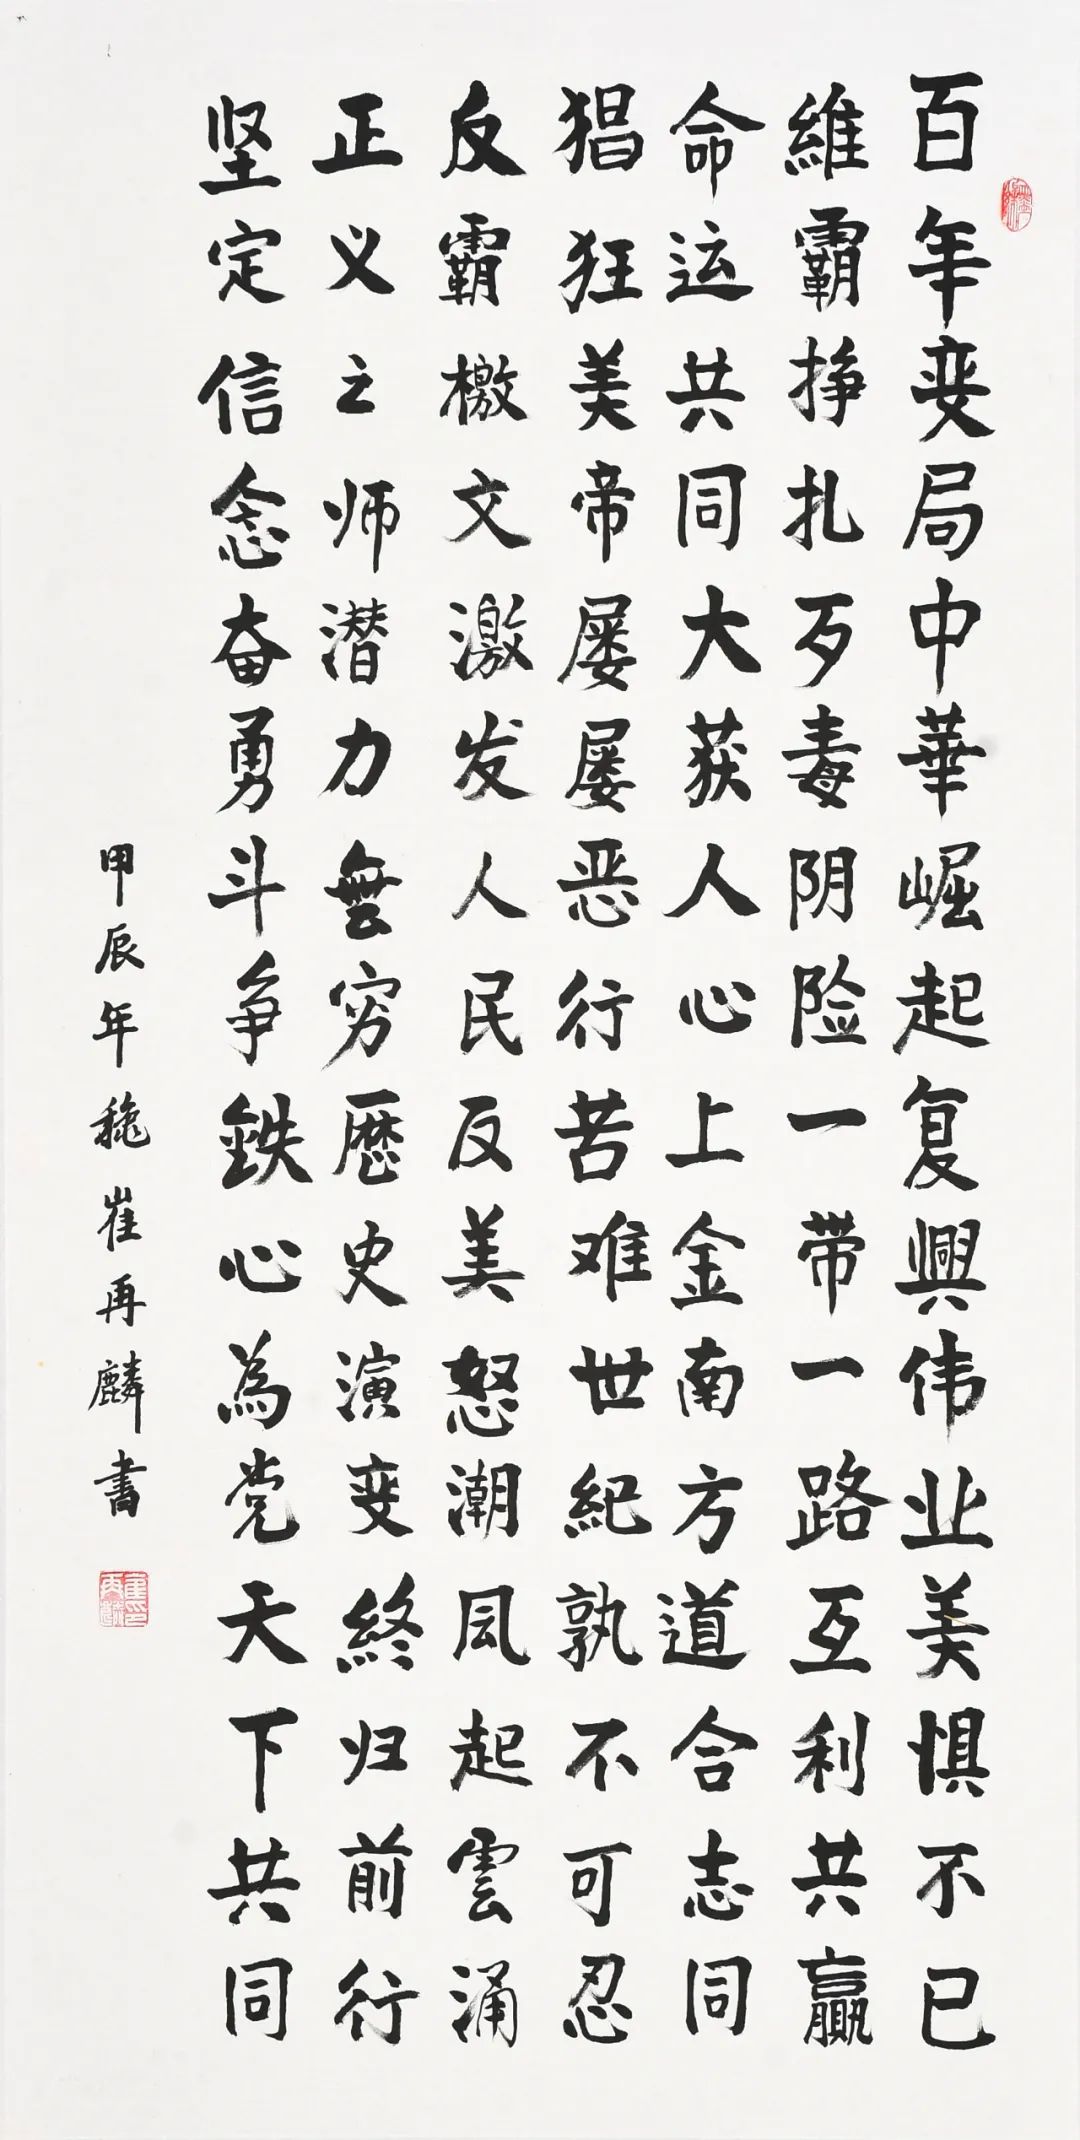 百年变局中華崛起复興伟业美惧不已
維霸挣扎歹毒阴险一带一路互利共赢
命运共同大获人心上金南方道合志同
猖狂美帝屡屡恶行苦难世纪孰不可忍
反霸檄文激发人民反美怒潮风起雲涌
正义之师潜力無穷历史演变終归前行
坚定信念奋勇斗争鉄心為党天下共同
甲辰年秋崔再麟书